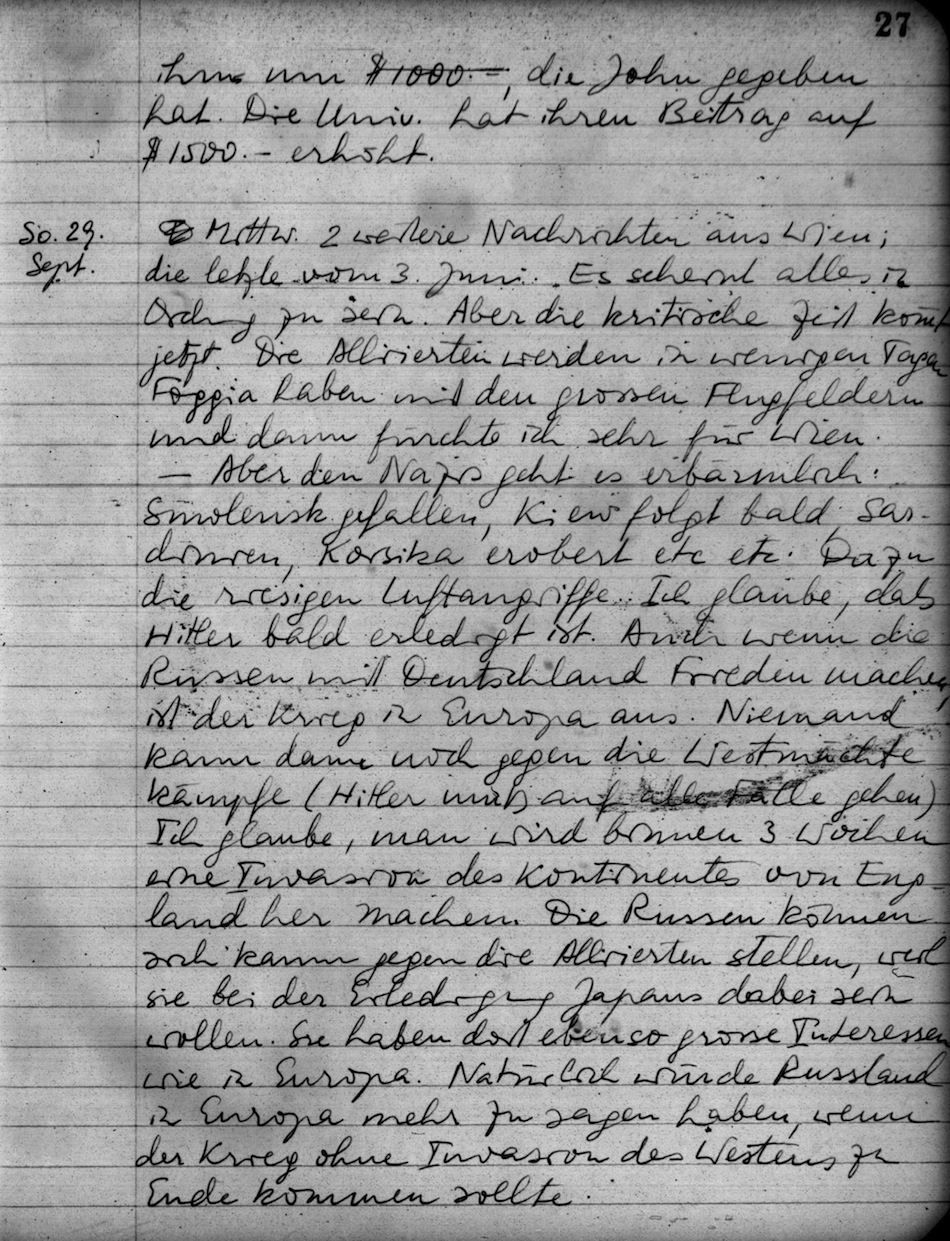 27
ihm um $1000.-, die John gegeben
hat. Die Univ. hat ihren Beitrag auf
$1500.- erhöht.
So. 29.
Sept.
Mittw. 2 weitere Nachrichten aus Wien;
die letzte vom 3. Juni. Es scheint alles in
Ordng zu sein. Aber die kritische Zeit komt
jetzt. Die Alliierten werden in wenigen Tagen
Foggia haben mit den grossen Flugfeldern
und dann fürchte ich sehr für Wien.
– Aber den Nazis geht es erbärmlich:
Smolensk gefallen, Kiew folgt bald, Sar-
dinien, Korsika erobert etc etc. Dazu
die riesigen Luftangriffe. Ich glaube, daß
Hitler bald erledigt ist. Auch wenn die
Russen mit Deutschland Frieden machen
ist der Krieg in Europa aus. Niemand
kann dann noch gegen die Westmächte
kämpfe (Hitler muß auf alle Fälle gehen)
Ich glaube, man wird binnen 3 Wochen
eine Invasion des Kontinentes von Eng-
land her machen. Die Russen können
sich kaum gegen die Alliierten stellen, weil
sie bei der Erledigung Japans dabei sein
wollen. Sie haben dort ebenso grosse Interessen
wie in Europa. Natürlich würde Russland
in Europa mehr zu sagen haben, wenn
der Krieg ohne Invasion des Westens zu
Ende kommen sollte.